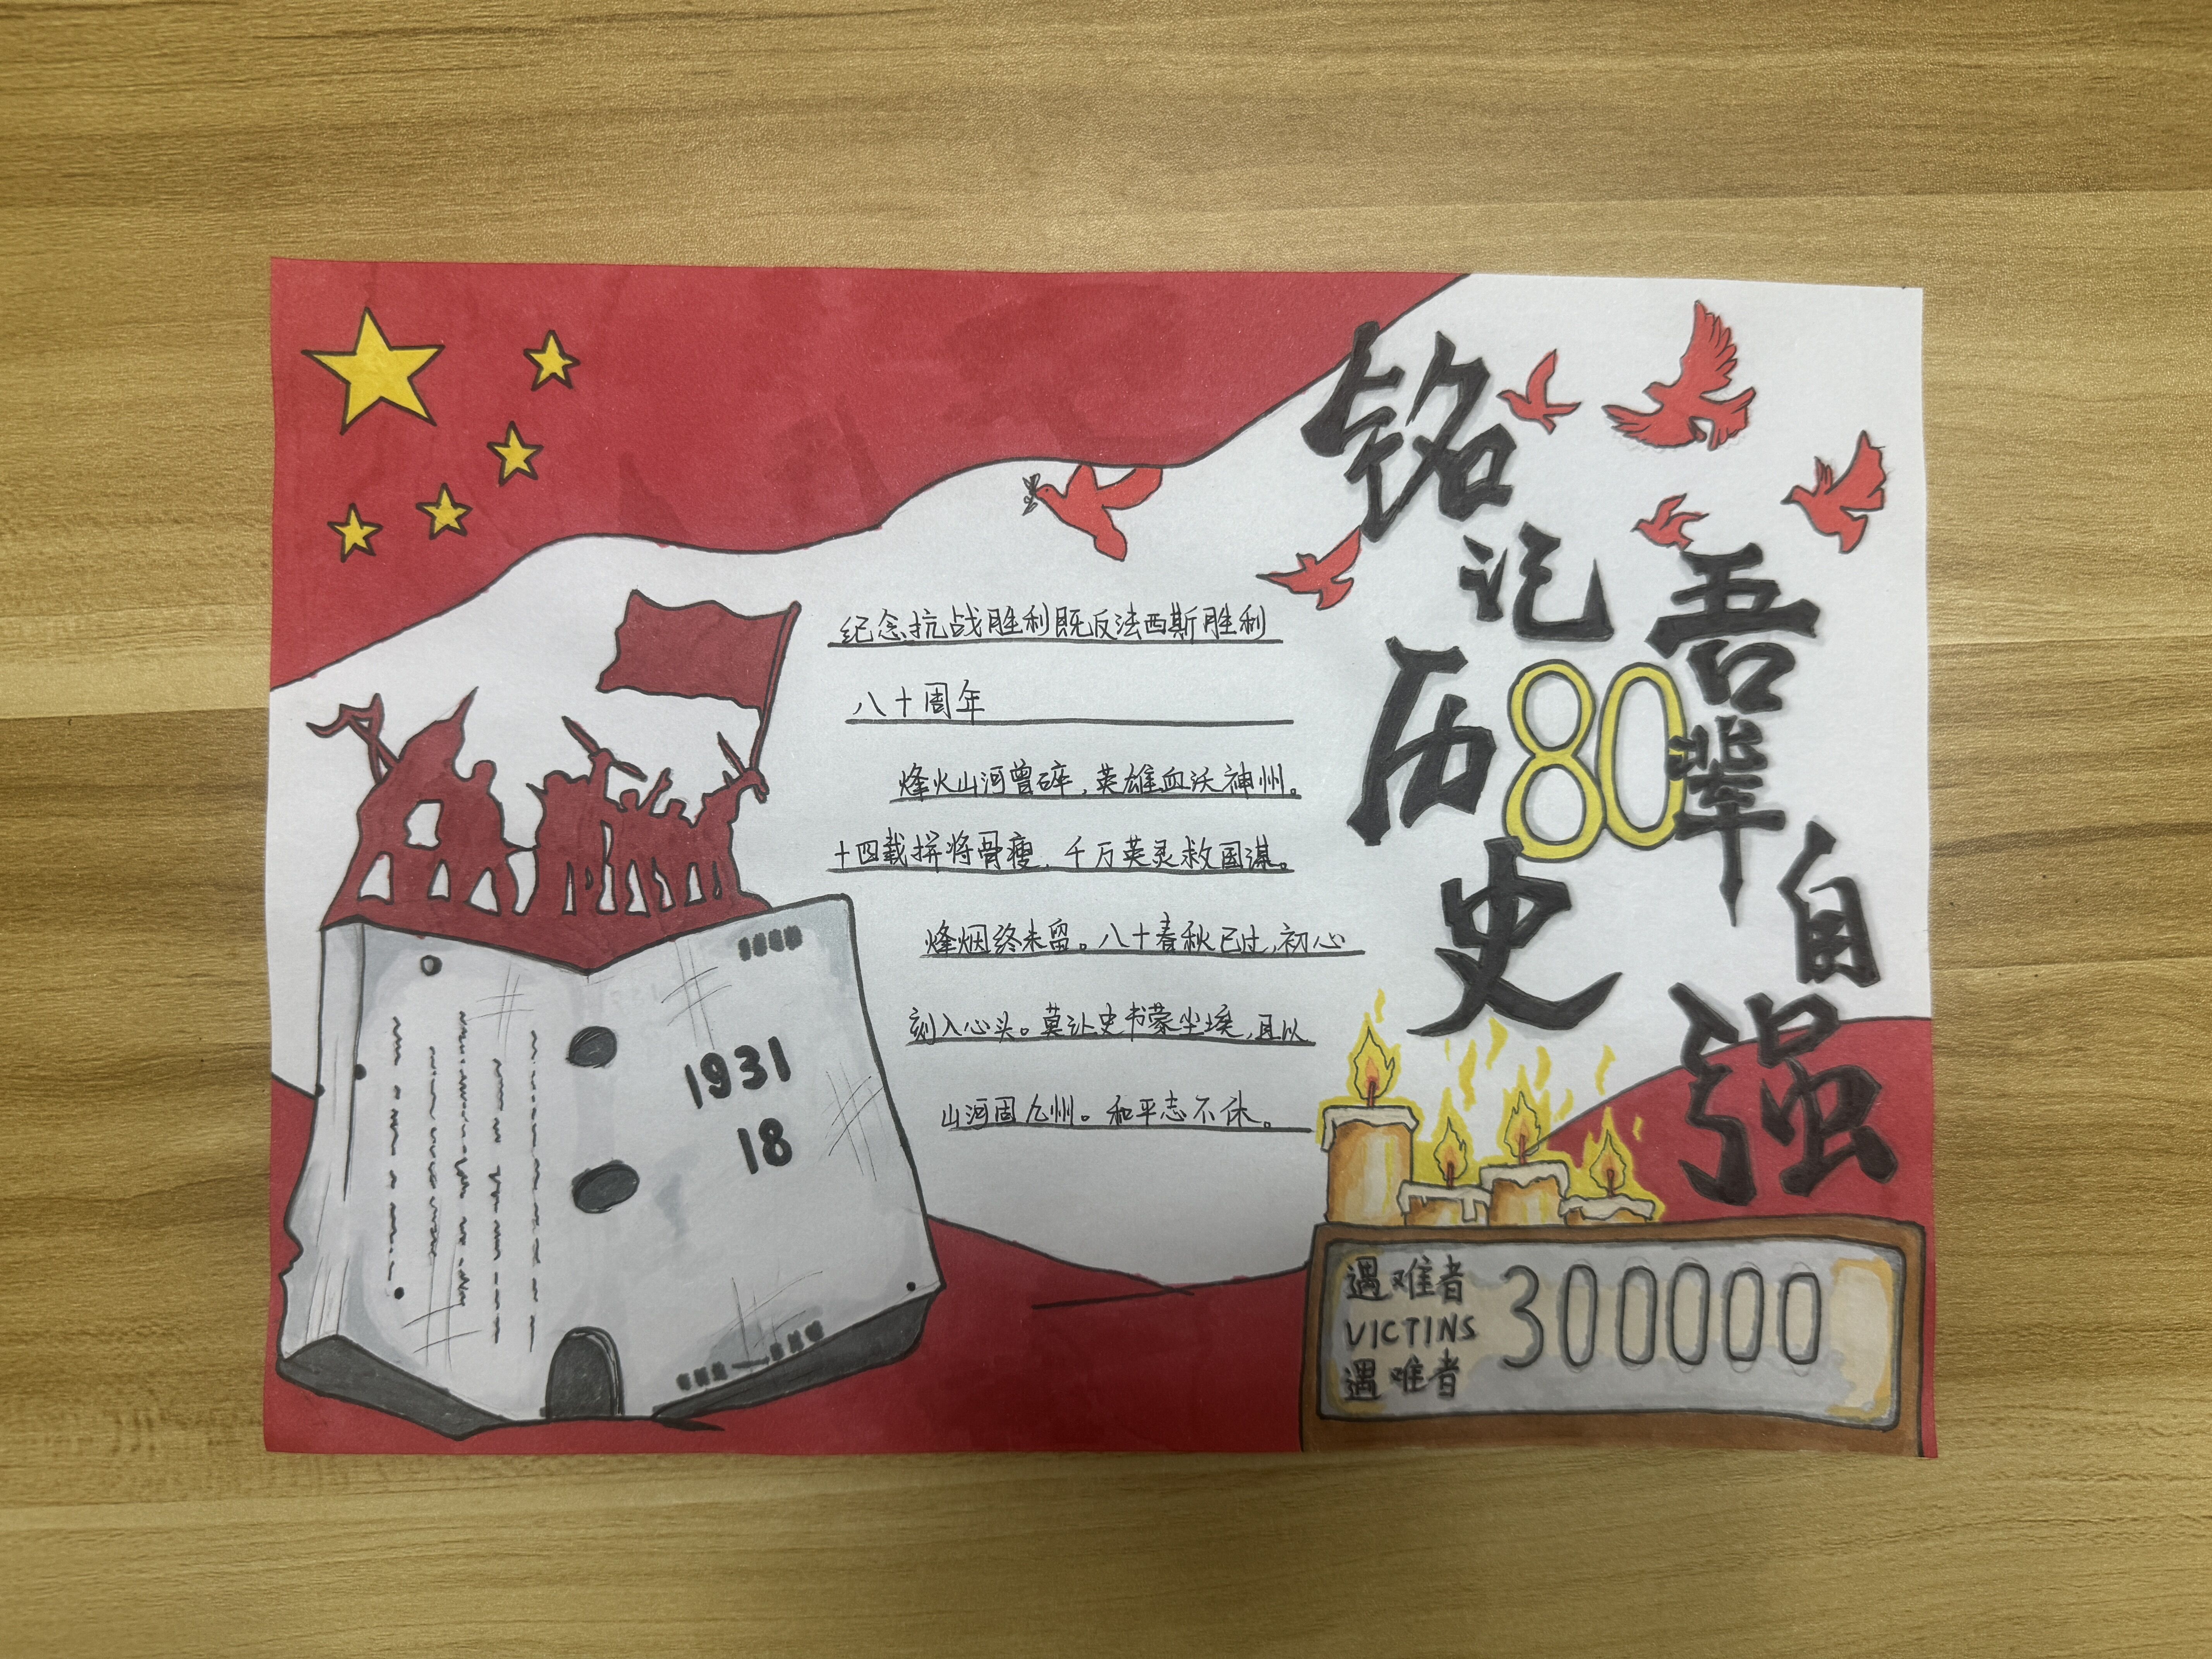 铭记
历史
80
吾辈
自强
纪念抗战胜利既反法西斯胜利
八十周年
烽火山河曾碎，英雄血沃神州。
十四载拼将骨瘦，千万英灵救国谋。
烽烟终未留。八十春秋已过，初心
刻入心头。莫让史书蒙尘埃，且以
山河固九州。和平志不休。
1931
18
遇难者
VICTINS
遇难者
300000